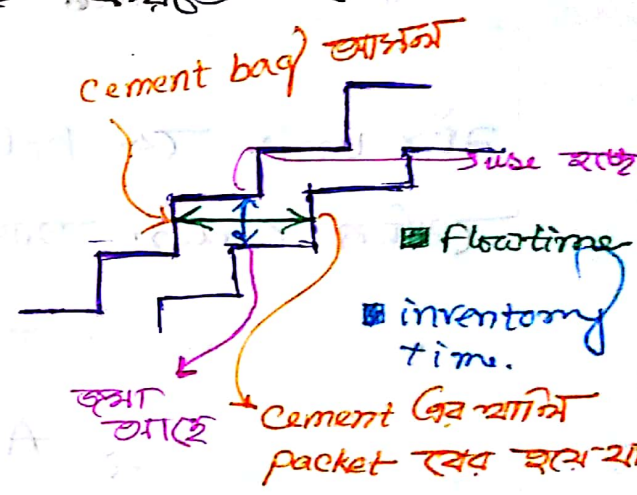 Cement bag আসল
use হচ্ছে
flowtime
inventory
time.
জমা
আছে
Cement এর খালি
packet বের হয়ে যা